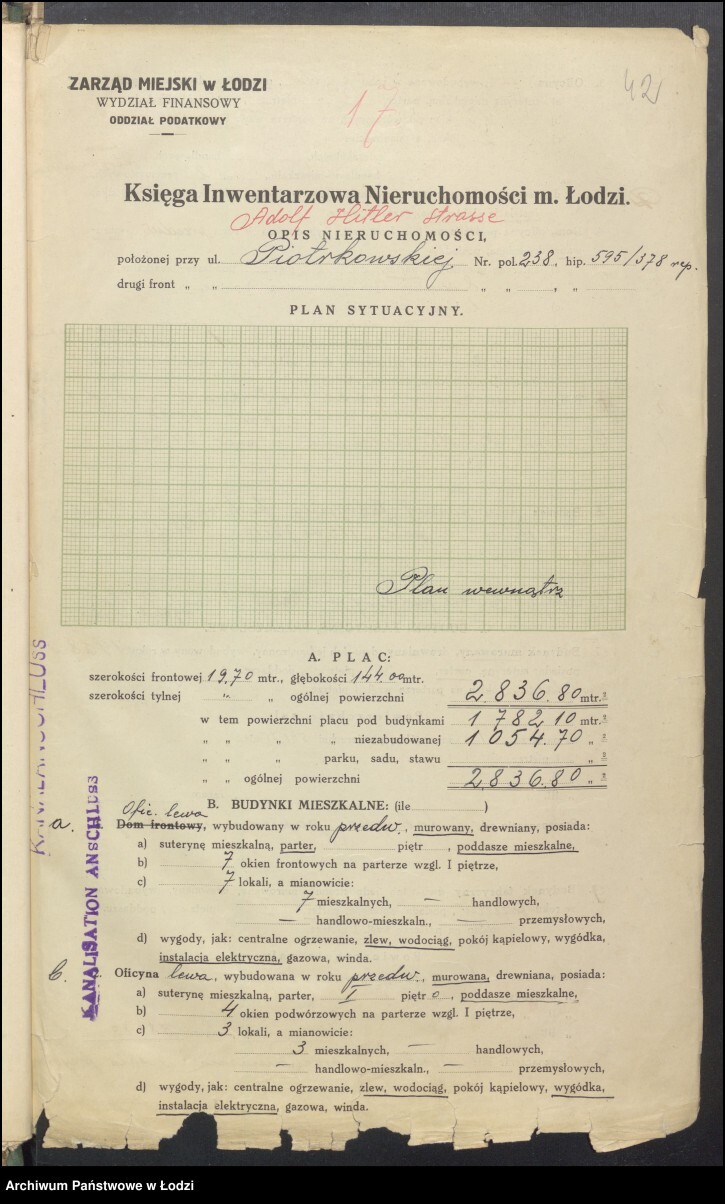 42
ZARZĄD MIEJSKI w ŁODZI
WYDZIAŁ FINANSOWY
ODDZIAŁ PODATKOWY
17
Księga Inwentarzowa Nieruchomości m. Łodzi.
Adolf Hitler Strasse
OPIS NIERUCHOMOŚCI,
położonej przy ul. Piotrkowskiej Nr. pol. 238, hip. 595/378 rep.
drugi front „ „ „ „ , „
PLAN SYTUACYJNY.
Plan wewnątrz
A. PLAC:
szerokości frontowej 19,70 mtr., głębokości 144.00 mtr.
szerokości tylnej „ „ ogólnej powierzchni 2.836.80 mtr.²
w tem powierzchni placu pod budynkami 1 782 10 mtr.²
„ „ „ „ niezabudowanej 1 054.70 „ ²
„ „ „ parku, sadu, stawu „ ²
„ „ ogólnej powierzchni 2.836.80 „ ²
KANALANSCHLUSS
KANALISATION ANSCHLUSS
B. BUDYNKI MIESZKALNE: (ile )
Ofic. lewa
a. Dom frontowy, wybudowany w roku przedw., murowany, drewniany, posiada:
a) suterynę mieszkalną, parter, piętr , poddasze mieszkalne,
b) 7 okien frontowych na parterze wzgl. I piętrze,
c) 7 lokali, a mianowicie:
7 mieszkalnych, — handlowych,
— handlowo-mieszkaln., — przemysłowych,
d) wygody, jak: centralne ogrzewanie, zlew, wodociąg, pokój kąpielowy, wygódka,
instalacja elektryczna, gazowa, winda.
b. Oficyna lewa, wybudowana w roku przedw., murowana, drewniana, posiada:
a) suterynę mieszkalną, parter, I piętr o, poddasze mieszkalne,
b) 4 okien podwórzowych na parterze wzgl. I piętrze,
c) 3 lokali, a mianowicie:
3 mieszkalnych, — handlowych,
— handlowo-mieszkaln., — przemysłowych,
d) wygody, jak: centralne ogrzewanie, zlew, wodociąg, pokój kąpielowy, wygódka,
instalacja elektryczna, gazowa, winda.
Archiwum Państwowe w Łodzi